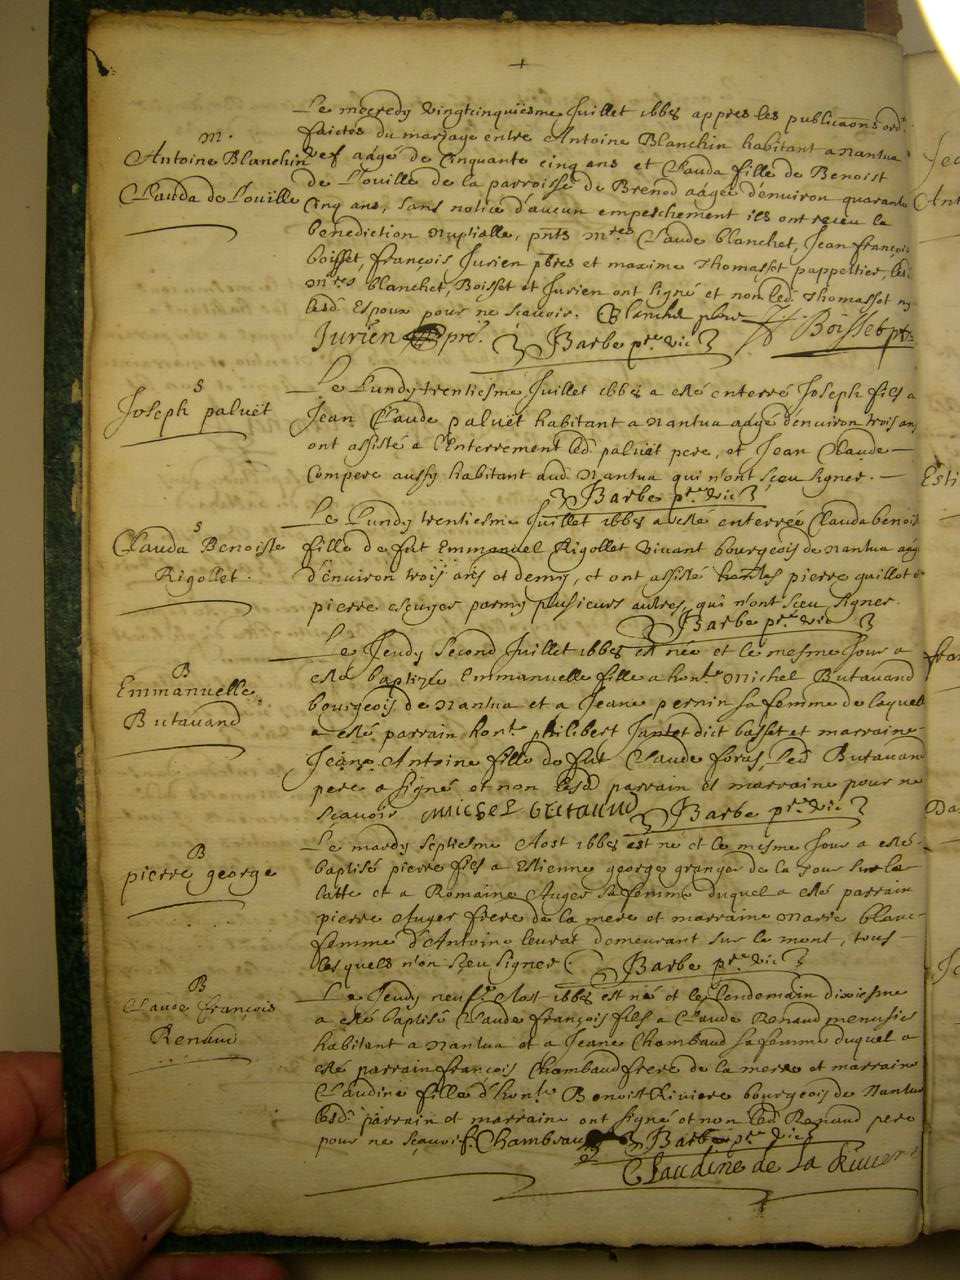 m.
Antoine Blanchin
Clauda de Louille
Le mecredy vingtcinquiesme Juillet 1668 appres les publicaons ord.
faictes du mariage entre Antoine Blanchin habitant a Nantua
vef aagé de Cinquante cinq ans et Clauda fille de Benoist
de Louille de la parroisse de Brenod aagée d'enuiron quarante
Cinq ans, sans notice d'aucun empeschement ils ont receu la
benediction Nuptialle, pnts mres Claude blanchet, Jean françois
boisset, françois Jurien pbres et maxime Thomasset pappetier, les
mres blanchet, Boisset et Jurien ont signé et non led. Thomasset ny
lesd. Espoux pour ne scauoir. Blanchet pbre J f Boisset ptre
Jurien pre. Barbe pre. vic
s
Joseph paluët
Le Lundy trentiesme Juillet 1668 a esté enterré Joseph fils a
Jean Claude paluët habitant a Nantua aagé d'enuiron trois ans
ont assisté a l'Enterrement led. paluët pere, et Jean Claude
Compere aussy habitant aud. Nantua qui n'ont sceu signer.
Barbe pre. vic
s
Clauda Benoiste
Rigollet.
Le Lundy trentiesme Juillet 1668 a esté enterrée Clauda benoiste
fille de fut Emmanuel Rigollet viuant bourgeois de Nantua aagée
d'enuiron trois ans et demy, et ont assisté pierre quillot et
pierre escuyer parmy plusieurs autres, qui n'ont sceu signer.
Barbe pre. vic
B
Emmanuelle
Butauand
Le Jeudy Second Juillet 1668 est née et le mesme Jour a
esté baptizée Emmanuelle fille a hon.le Michel Butauand
bourgeois de Nantua et a Jeane pernin sa femme de laquelle
a esté parrain hon.le philibert Jantet dict basset et marraine
Jeane Antoine fille de fut Claude foras, led. Butauand
pere a signé et non lesd. parrain et marraine pour ne
scauoir Michel Butauand Barbe pre. vic
B
pierre george
Le mardy septiesme Aost 1668 est né et le mesme Jour a esté
baptisé pierre fils a Estienne george granger de la tour sur la
latte et a Romaine Auger sa femme duquel a esté parrain
pierre Auger frere de la mere et marraine Marie blanc
femme d'Antoine leurat demeurant sur le mont, tous
lesquels n'on sceu signer Barbe pre. vic
B
Claude françois
Renaud
Le Jeudy neuf.e Aost 1668 est né et le lendemain dixiesme
a esté baptisé Claude françois fils a Claude Renaud menusier
habitant a Nantua et a Jeane Chambaud sa femme duquel a
esté parrain françois Chambaud frere de la mere et marraine
Claudine fille d'hon.le Benoist Riuiere bourgeois de Nantua
lesd. parrain et marraine ont signé et non led. Renaud pere
pour ne scauoir f. Chambeau Barbe pre. vic
Claudine de la Riuiere